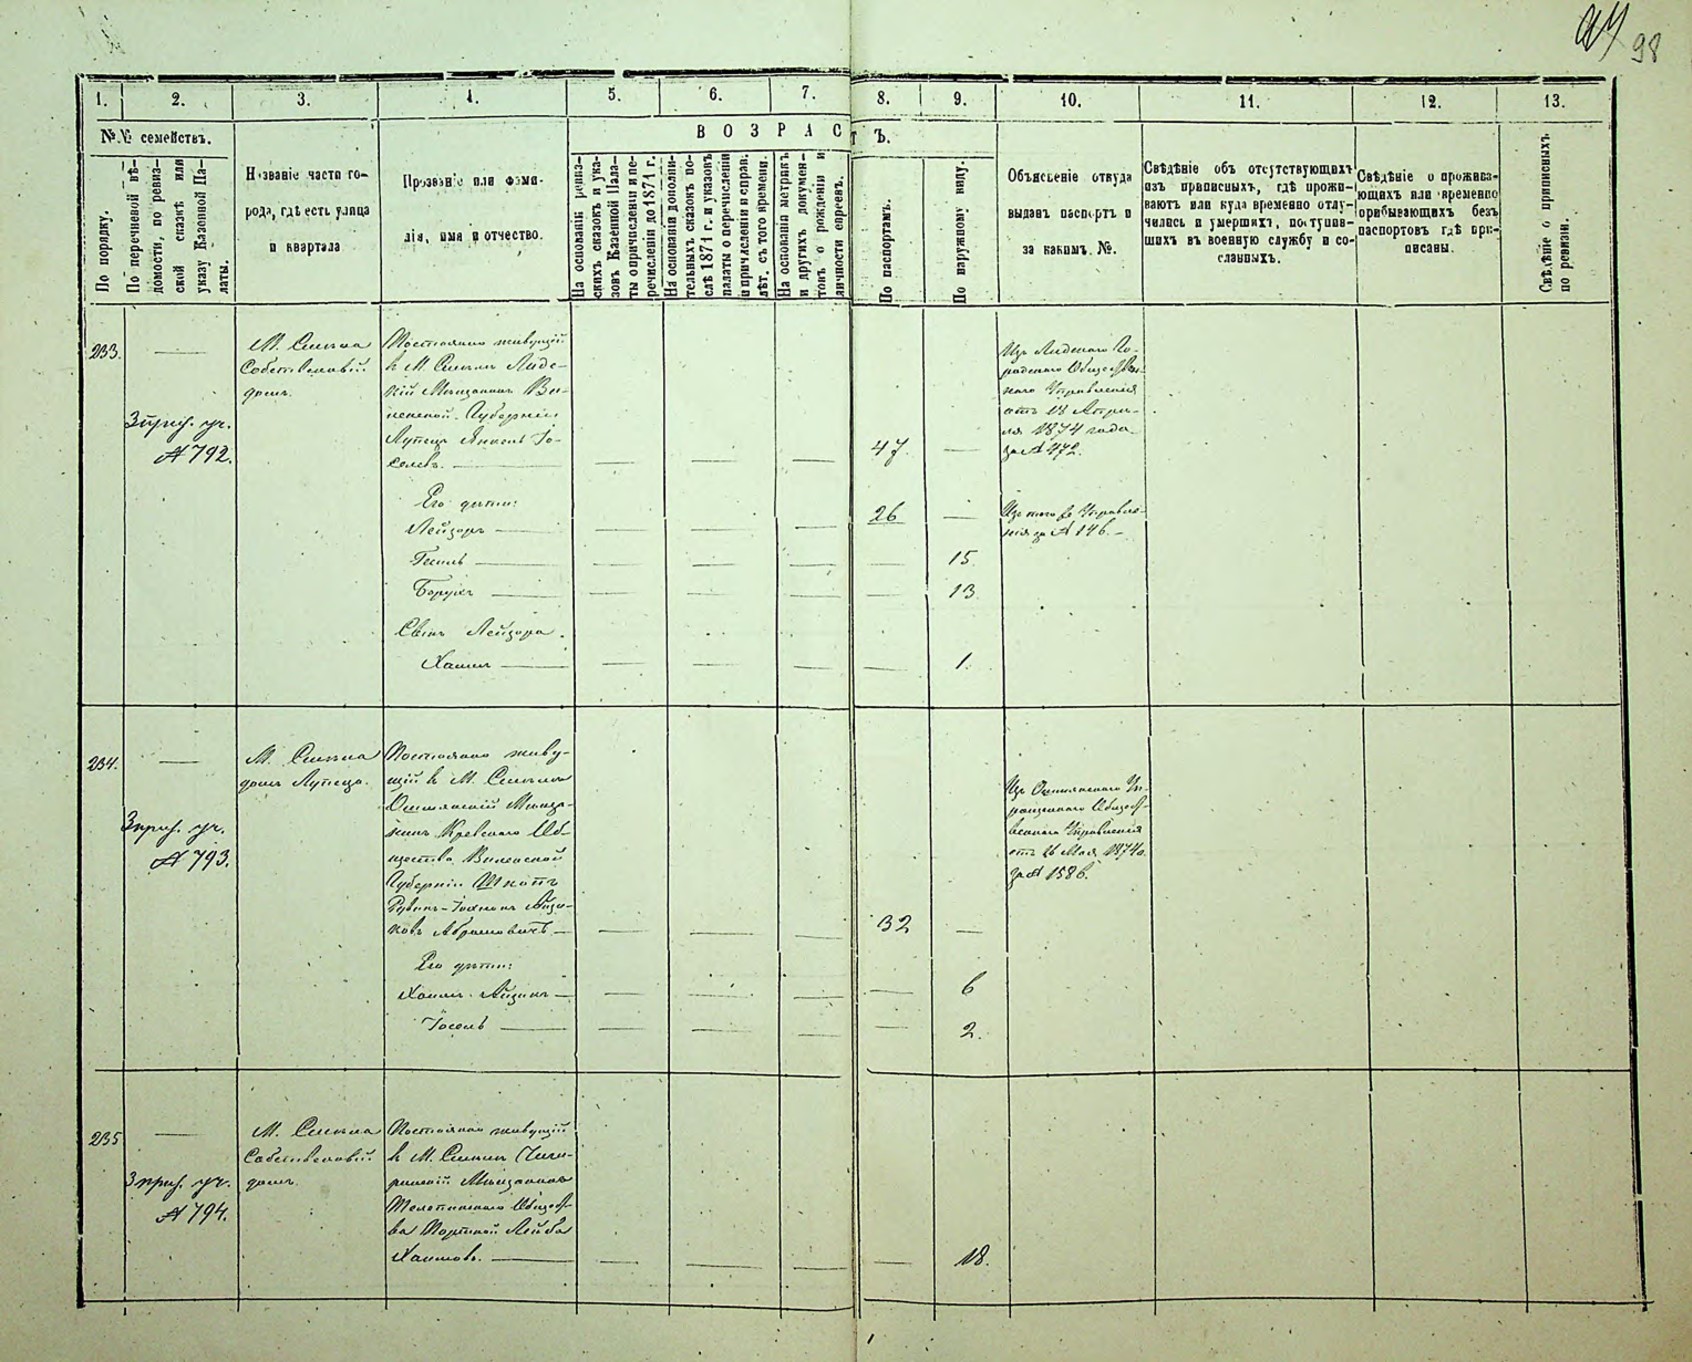 98
1. 2. 3. 4. 5. 6. 7. 8. 9. 10. 11. 12. 13.
№№ семействъ.
ВОЗРАСТЪ.
По порядку.
По перечневой вѣ-
домости, по ревиз-
ской сказкѣ или
указу Казенной Па-
латы.
Названіе части го-
рода, гдѣ есть улица
и квартала
Прозваніе или фами-
лія, имя и отчество.
На основаніи ревиз-
скихъ сказокъ и ука-
зовъ Казенной Пала-
ты о причисленіи и пе-
речисленіи до 1871 г.
На основаніи дополни-
тельныхъ сказокъ по-
слѣ 1871 г. и указовъ
палаты о перечисленіи
и причисленіи и справ.
лѣт. съ того времени.
На основаніи метрикъ
и другихъ докумен-
товъ о рожденіи и
личности евреевъ.
По паспортамъ.
По наружному виду.
Объясненіе откуда
выданъ паспортъ и
за какимъ №.
Свѣдѣніе объ отсутствующихъ
изъ приписныхъ, гдѣ прожи-
ваютъ или куда временно отлу-
чились и умершихъ, поступив-
шихъ въ военную службу и со-
сланныхъ.
Свѣдѣніе о прожива-
ющихъ или временно
прибывающихъ безъ
паспортовъ гдѣ при-
писаны.
Свѣдѣніе о приписныхъ
по ревизіи.
233.
М. Смѣла
Собственный
домъ.
3 приз. уч.
№ 792.
Постоянно живущій
въ М. Смѣлѣ Лид-
скій Мѣщанинъ Ви-
ленской Губерніи
Лупецъ Янкель Іо-
селевъ.
47
Изъ Лидскаго Го-
родскаго Обществен-
наго Управленія
отъ 18 Апрѣ-
ля 1874 года
за № 472.
Его дѣти:
Лейзоръ
26
Изъ того же Управле-
нія за № 146.
15.
Борухъ
13
Сынъ Лейзора.
Хаимъ
1.
234.
М. Смѣла
домъ Лупеца.
3 приз. уч.
№ 793.
Постоянно живу-
щій въ М. Смѣлѣ
Ошмянскій Мѣща-
нинъ Кревскаго Об-
щества Виленской
Губерніи Шкопъ
Рувинъ-Іохнонъ Айзи-
ковъ Абрамовичъ
32
Изъ Ошмянскаго
Управленія
отъ 26 Мая 1874 г.
за № 1586.
Его дѣти:
Хаимъ-Айзикъ
6
Іосель
2.
235
М. Смѣла
Собственный
домъ.
3 приз. уч.
№ 794.
Постоянно живущій
въ М. Смѣлѣ Чиги-
ринскій Мѣщанинъ
Общест-
ва Портной Лейба
Хаимовъ.
18.